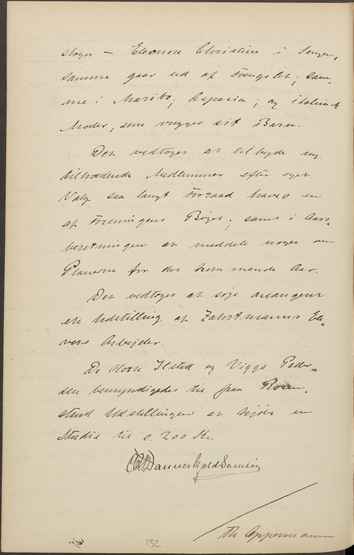 sloges — Eleonore Christine i Fængsel,
samme gaar ud af Fængslet; sam-
me i Maribo; Aspasia; og italiensk
Moder, som vugger sit Barn.
Det vedtoges at tilbyde ny
tiltrædende Medlemmer efter eget
Valg saa langt Forraad haves en
af Foreningens Bøger; samt i Aars-
beretningen at meddele noget om
Planerne for det kommende Aar.
Det vedtoges at søge arrangeret
en Udstilling af Zahrtmanns Ele-
vers Arbejder.
De Herrer Ilsted og Viggo Peder-
sen bemyndigedes til paa
Udstillingen at kjøbe en
Studie til c. 200 Kr.
Danneskjold Samsøe
Th. Oppermann
152